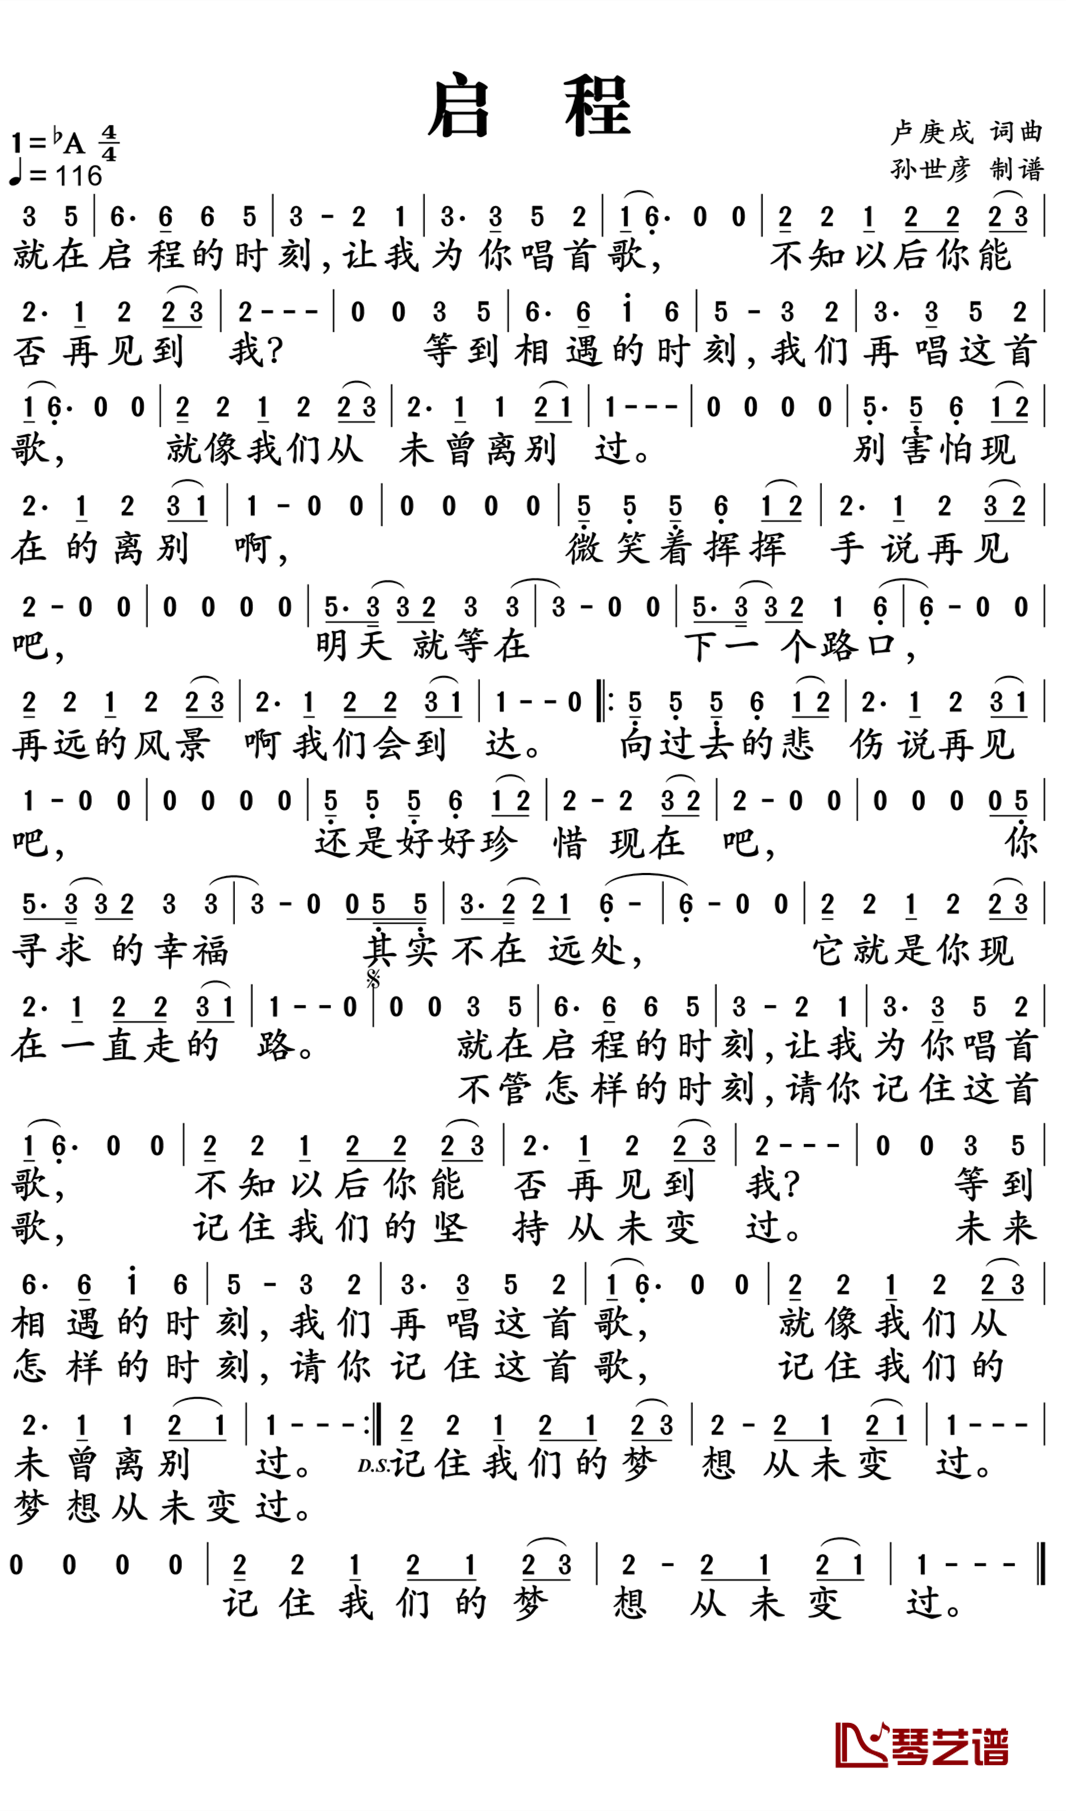 启 程
1=♭A 4/4
♩=116
卢庚戌 词曲
孙世彦 制谱
3 5 | 6. 6 6 5 | 3 - 2 1 | 3. 3 5 2 | 1 6. 0 0 | 2 2 1 2 2 2 3 |
就在启程的时刻,让我为你唱首歌, 不知以后你能
2. 1 2 2 3 | 2 - - - | 0 0 3 5 | 6. 6 i 6 | 5 - 3 2 | 3. 3 5 2 |
否再见到 我? 等到相遇的时刻,我们再唱这首
1 6. 0 0 | 2 2 1 2 2 3 | 2. 1 1 2 1 | 1 - - - | 0 0 0 0 | 5. 5 6 1 2 |
歌, 就像我们从 未曾离别 过。 别害怕现
2. 1 2 3 1 | 1 - 0 0 | 0 0 0 0 | 5 5 5 6 1 2 | 2. 1 2 3 2 |
在的离别 啊, 微笑着挥挥 手说再见
2 - 0 0 | 0 0 0 0 | 5. 3 3 2 3 3 | 3 - 0 0 | 5. 3 3 2 1 6 | 6 - 0 0 |
吧, 明天就等在 下一个路口,
2 2 1 2 2 3 | 2. 1 2 2 3 1 | 1 - - 0 ‖: 5 5 5 6 1 2 | 2. 1 2 3 1 |
再远的风景 啊我们会到 达。 向过去的悲 伤说再见
1 - 0 0 | 0 0 0 0 | 5 5 5 6 1 2 | 2 - 2 3 2 | 2 - 0 0 | 0 0 0 0 5 |
吧, 还是好好珍 惜现在 吧, 你
5. 3 3 2 3 3 | 3 - 0 0 5 5 | 3. 2 2 1 6 - | 6 - 0 0 | 2 2 1 2 2 3 |
寻求的幸福 其实不在远处, 它就是你现
2. 1 2 2 3 1 | 1 - - 0 | 0 0 3 5 | 6. 6 6 5 | 3 - 2 1 | 3. 3 5 2 |
在一直走的 路。 就在启程的时刻,让我为你唱首
不管怎样的时刻,请你记住这首
1 6. 0 0 | 2 2 1 2 2 2 3 | 2. 1 2 2 3 | 2 - - - | 0 0 3 5 |
歌, 不知以后你能 否再见到 我? 等到
歌, 记住我们的坚 持从未变 过。 未来
6. 6 i 6 | 5 - 3 2 | 3. 3 5 2 | 1 6. 0 0 | 2 2 1 2 2 3 |
相遇的时刻,我们再唱这首歌, 就像我们从
怎样的时刻,请你记住这首歌, 记住我们的
2. 1 1 2 1 | 1 - - - :‖ 2 2 1 2 1 2 3 | 2 - 2 1 2 1 | 1 - - - |
未曾离别 过。 D.S.记住我们的梦 想 从未变 过。
梦想从未变过。
0 0 0 0 | 2 2 1 2 1 2 3 | 2 - 2 1 2 1 | 1 - - - ‖
记住我们的梦 想 从未变 过。
琴艺谱